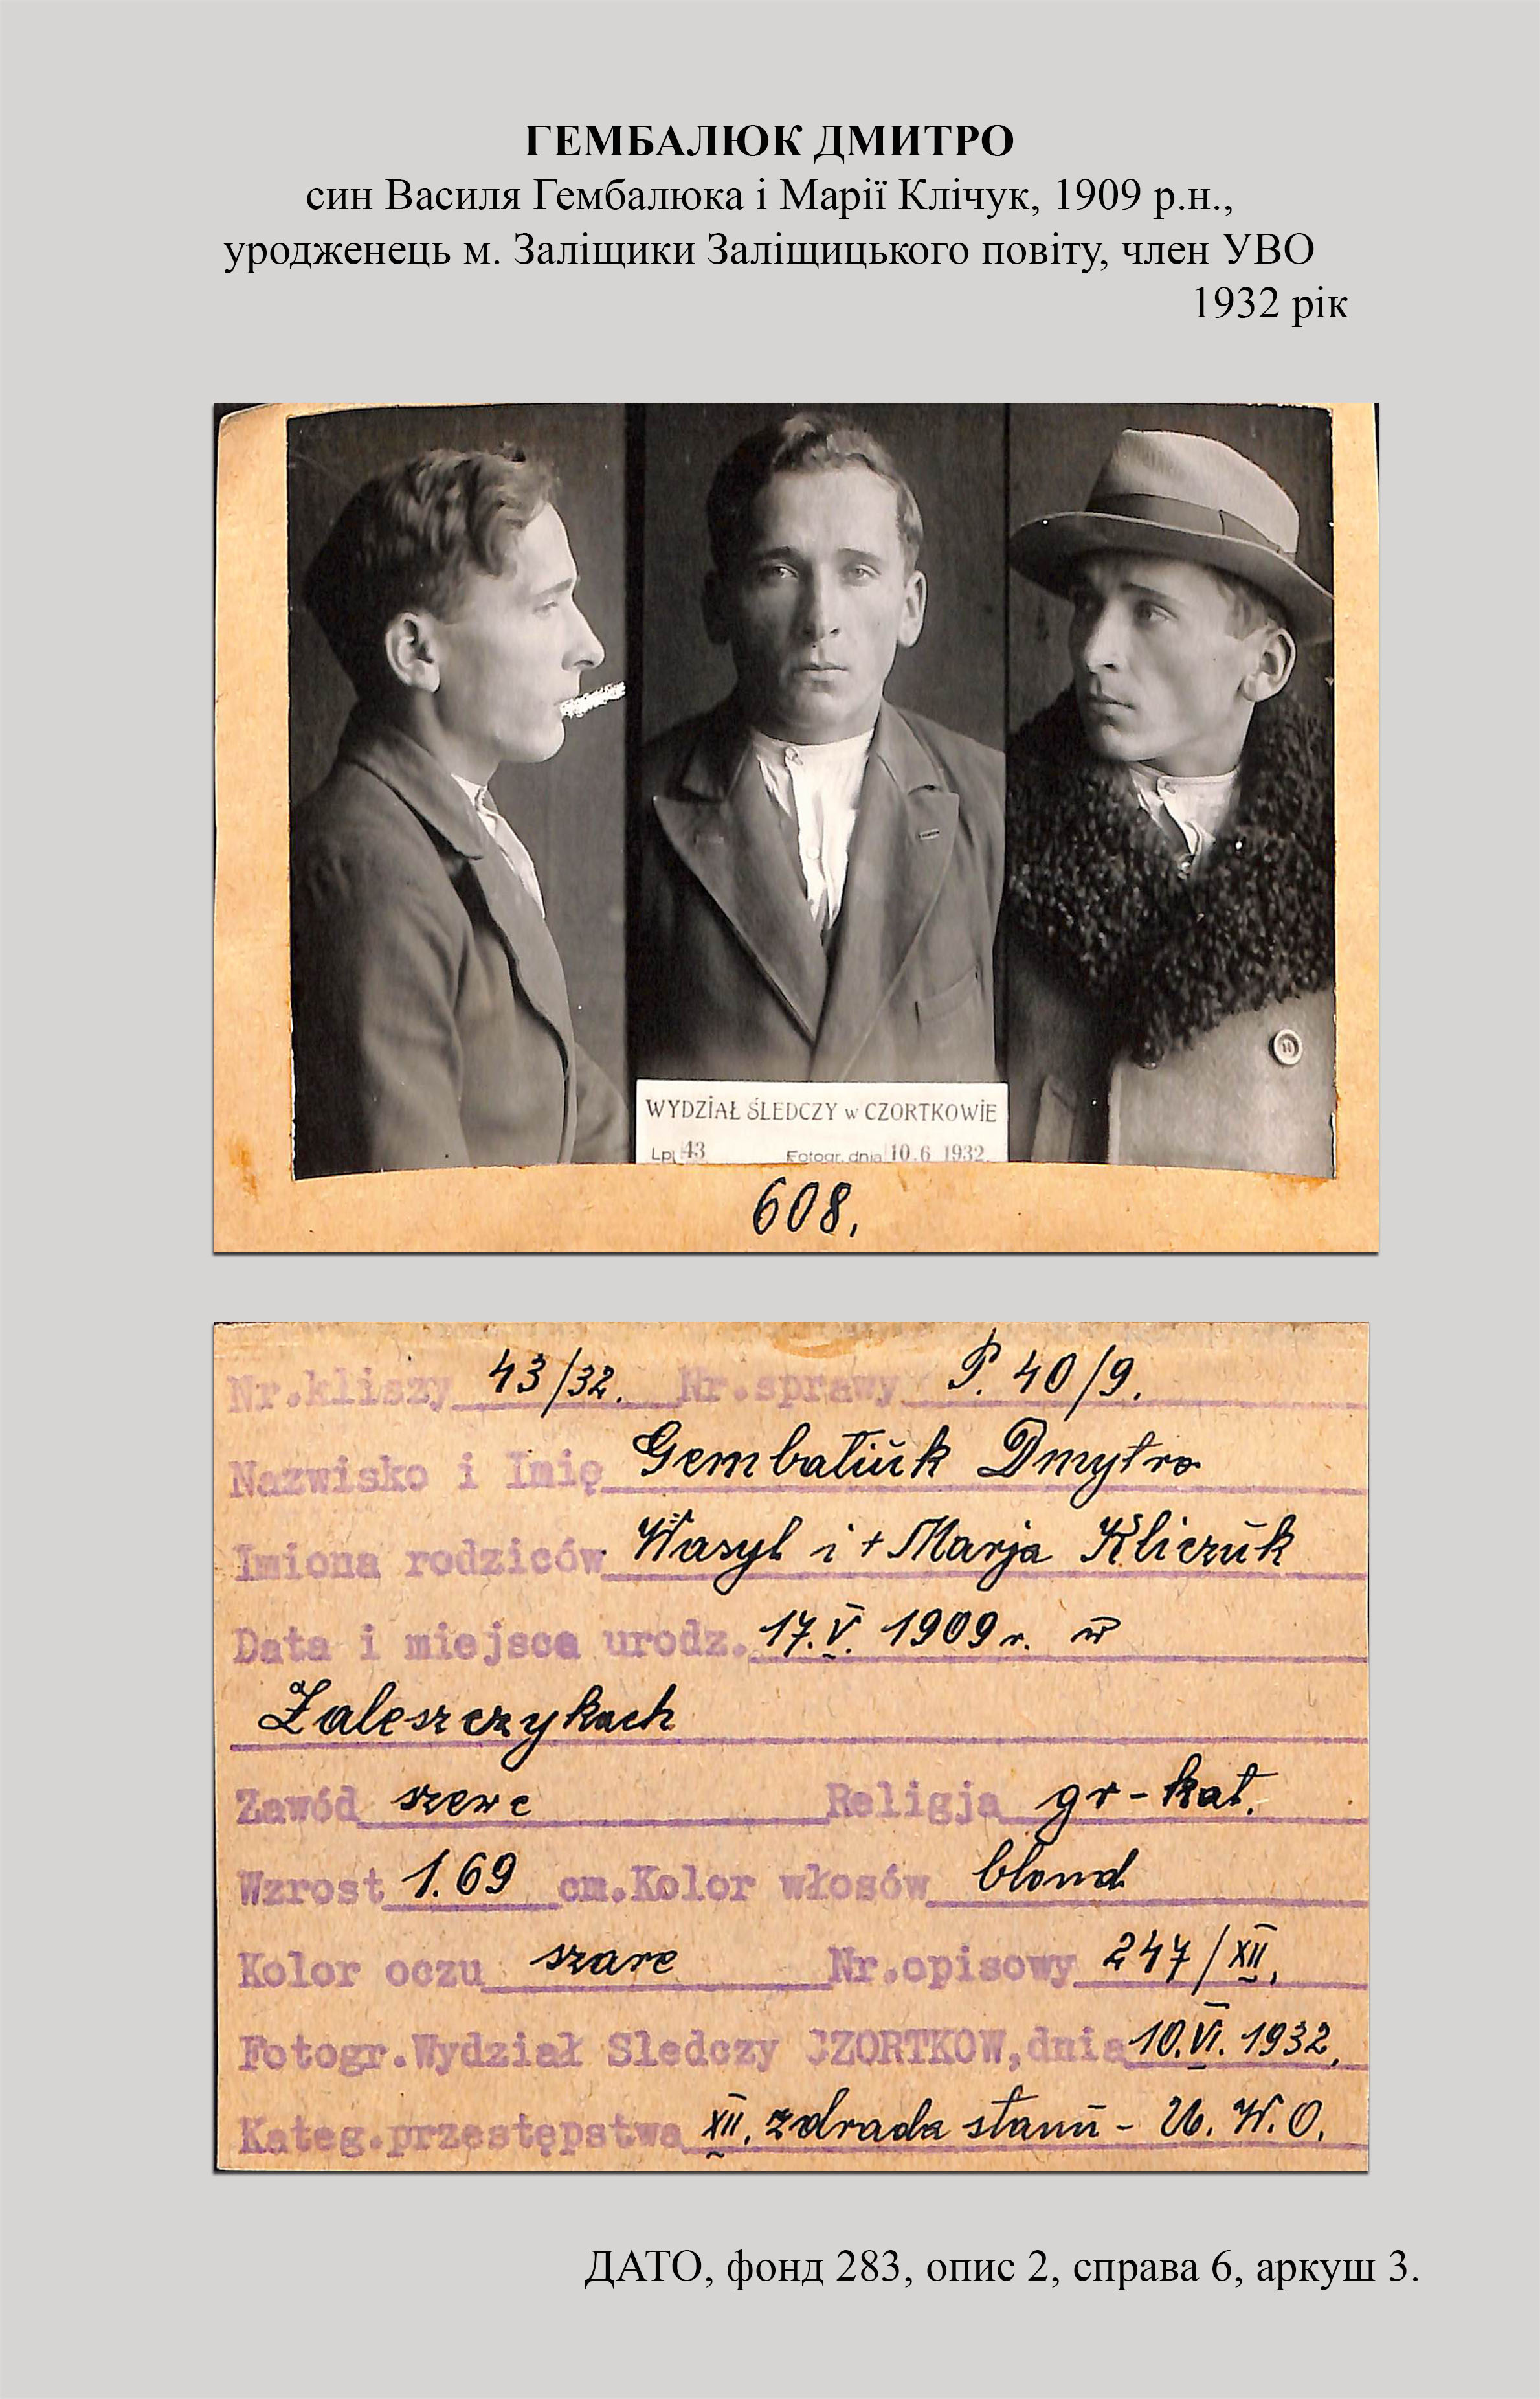 ГЕМБАЛЮК ДМИТРО
син Василя Гембалюка і Марії Клічук, 1909 р.н.,
уродженець м. Заліщики Заліщицького повіту, член УВО
1932 рік
WYDZIAŁ ŚLEDCZY w CZORTKOWIE
Lp. 43 Fotogr. dnia 10.6 1932
608.
Nr.kliszy 43/32. Nr.sprawy P. 40/9.
Nazwisko i Imię Gembaliuk Dmytro
Imiona rodziców Wasyl i + Marja Kliczuk
Data i miejsce urodz. 17.V. 1909 r. w
Zaleszczykach
Zawód szewc Religja gr-kat.
Wzrost 1.69 cm. Kolor włosów blond
Kolor oczu szare Nr.opisowy 247/XII.
Fotogr.Wydział Sledczy CZORTKOW, dnia 10.VI. 1932.
Kateg.przestępstwa XII. zdrada stanu - U. W. O.
ДАТО, фонд 283, опис 2, справа 6, аркуш 3.